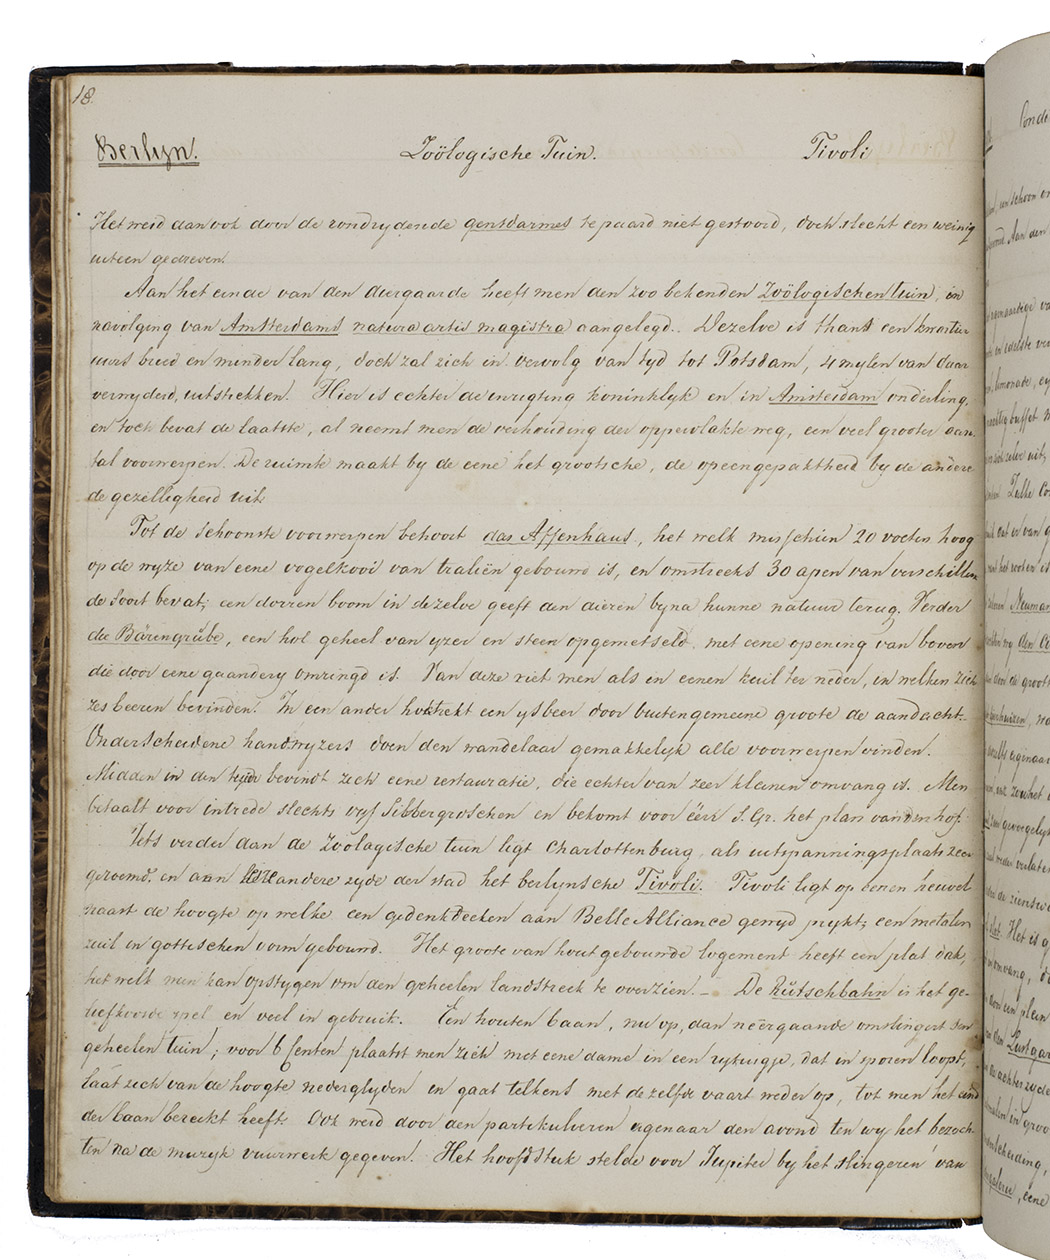 18.
Berlijn. Zoölogische Tuin. Tivoli
Het werd dan ook door de rondrydende gensdarmes te paard niet gestoord, doch slecht een weinig
uiteen gedreven.
Aan het einde van den diergaarde heeft men den zoo bekenden Zoölogischen tuin, in
navolging van Amsterdams natura artis magistra aangelegd. Dezelve is thans een kwartier
uurs breed en minder lang, doch zal zich in vervolg van tyd tot Potsdam, 4 mylen van daar
verwyderd, uitstrekken. Hier is echter de inrigting koninklyk en in Amsterdam onderling,
en toch bevat de laatste, al neemt men de verhouding der oppervlakte weg, een veel grooter aan-
tal voorwerpen. De ruimte maakt by de eene het grootsche, de opeengepaktheid by de andere
de gezelligheid uit.
Tot de schoonste voorwerpen behoort das Affenhaus, het welk misschien 20 voeten hoog
op de wyze van eene vogelkooi van traliën gebouwd is, en omstreeks 30 apen van verschillen-
de soort bevat; een dorren boom in dezelve geeft den dieren byna hunne natuur terug. Verder
die Bärengrube, een hol geheel van yzer en steen opgemetseld, met eene opening van boven
die door eene gaandery omringd is. Van deze ziet men als in eenen kuil ter neder, in welken zich
zes beeren bevinden. In een ander hok trekt een ysbeer door buitengemeene groote de aandacht.
Onderscheidene handwyzers doen den wandelaar gemakkelyk alle voorwerpen vinden.
Midden in den tuin bevindt zich eene restauratie, die echter van zeer kleinen omvang is. Men
betaalt voor intrede slechts vyf Silbergroschen en bekomt voor één S. Gr. het plan van den hof.
Iets verder aan de Zoologische tuin ligt Charlottenburg, als uitspanningsplaats zeer
geroemd, en aan andere zyde der stad het berlynsche Tivoli. Tivoli ligt op eenen heuvel
naast de hoogte op welke een gedenkteeken aan Belle Alliance gewyd prykt; een metalen
zuil in gottischen vorm gebouwd. Het groote van hout gebouwde logement heeft een plat dak,
het welk men kan opstygen om den geheelen landstreek te overzien. – De Rütschbahn is het ge-
liefkoosde spel en veel in gebruik. Een houten baan, nu op, dan neêrgaande omslingert den
geheelen tuin; voor 6 Centen plaatst men zich met eene dame in een rytuigje, dat in sporen loopt,
laat zich van de hoogte nederglyden en gaat telkens met de zelfde vaart weder op, tot men het eind
der baan bereikt heeft. Ook werd door den partikulieren eigenaar den avond ten wy het bezoch-
ten na de muzyk vuurwerk gegeven. Het hoofdstuk stelde voor Jupiter by het slingeren van